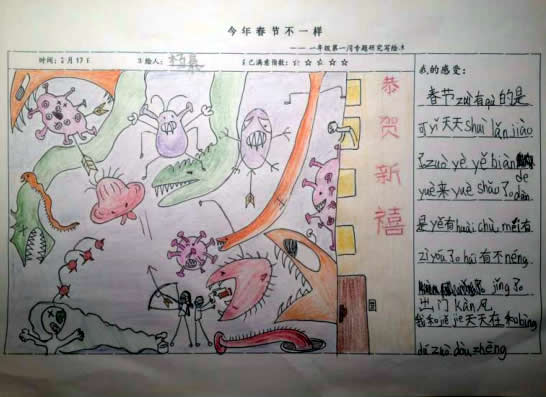 今年春节不一样
—— 一年级第一周专题研究写绘本
时间：2月17日
绘人：
自己满意指数：☆ ☆ ☆ ☆
恭贺新禧
我的感受：
春节zuì有qù的是
可yǐ天天shuì lǎn jiào
了zuò yè yě biàn de
yuè来yuè shǎo了dàn
是yě有huài chù，méi有
zì yóu了hái有不néng
出门kàn风jǐng了
我和jiě jie天天在和bìng
dú zuò dòu zhēng